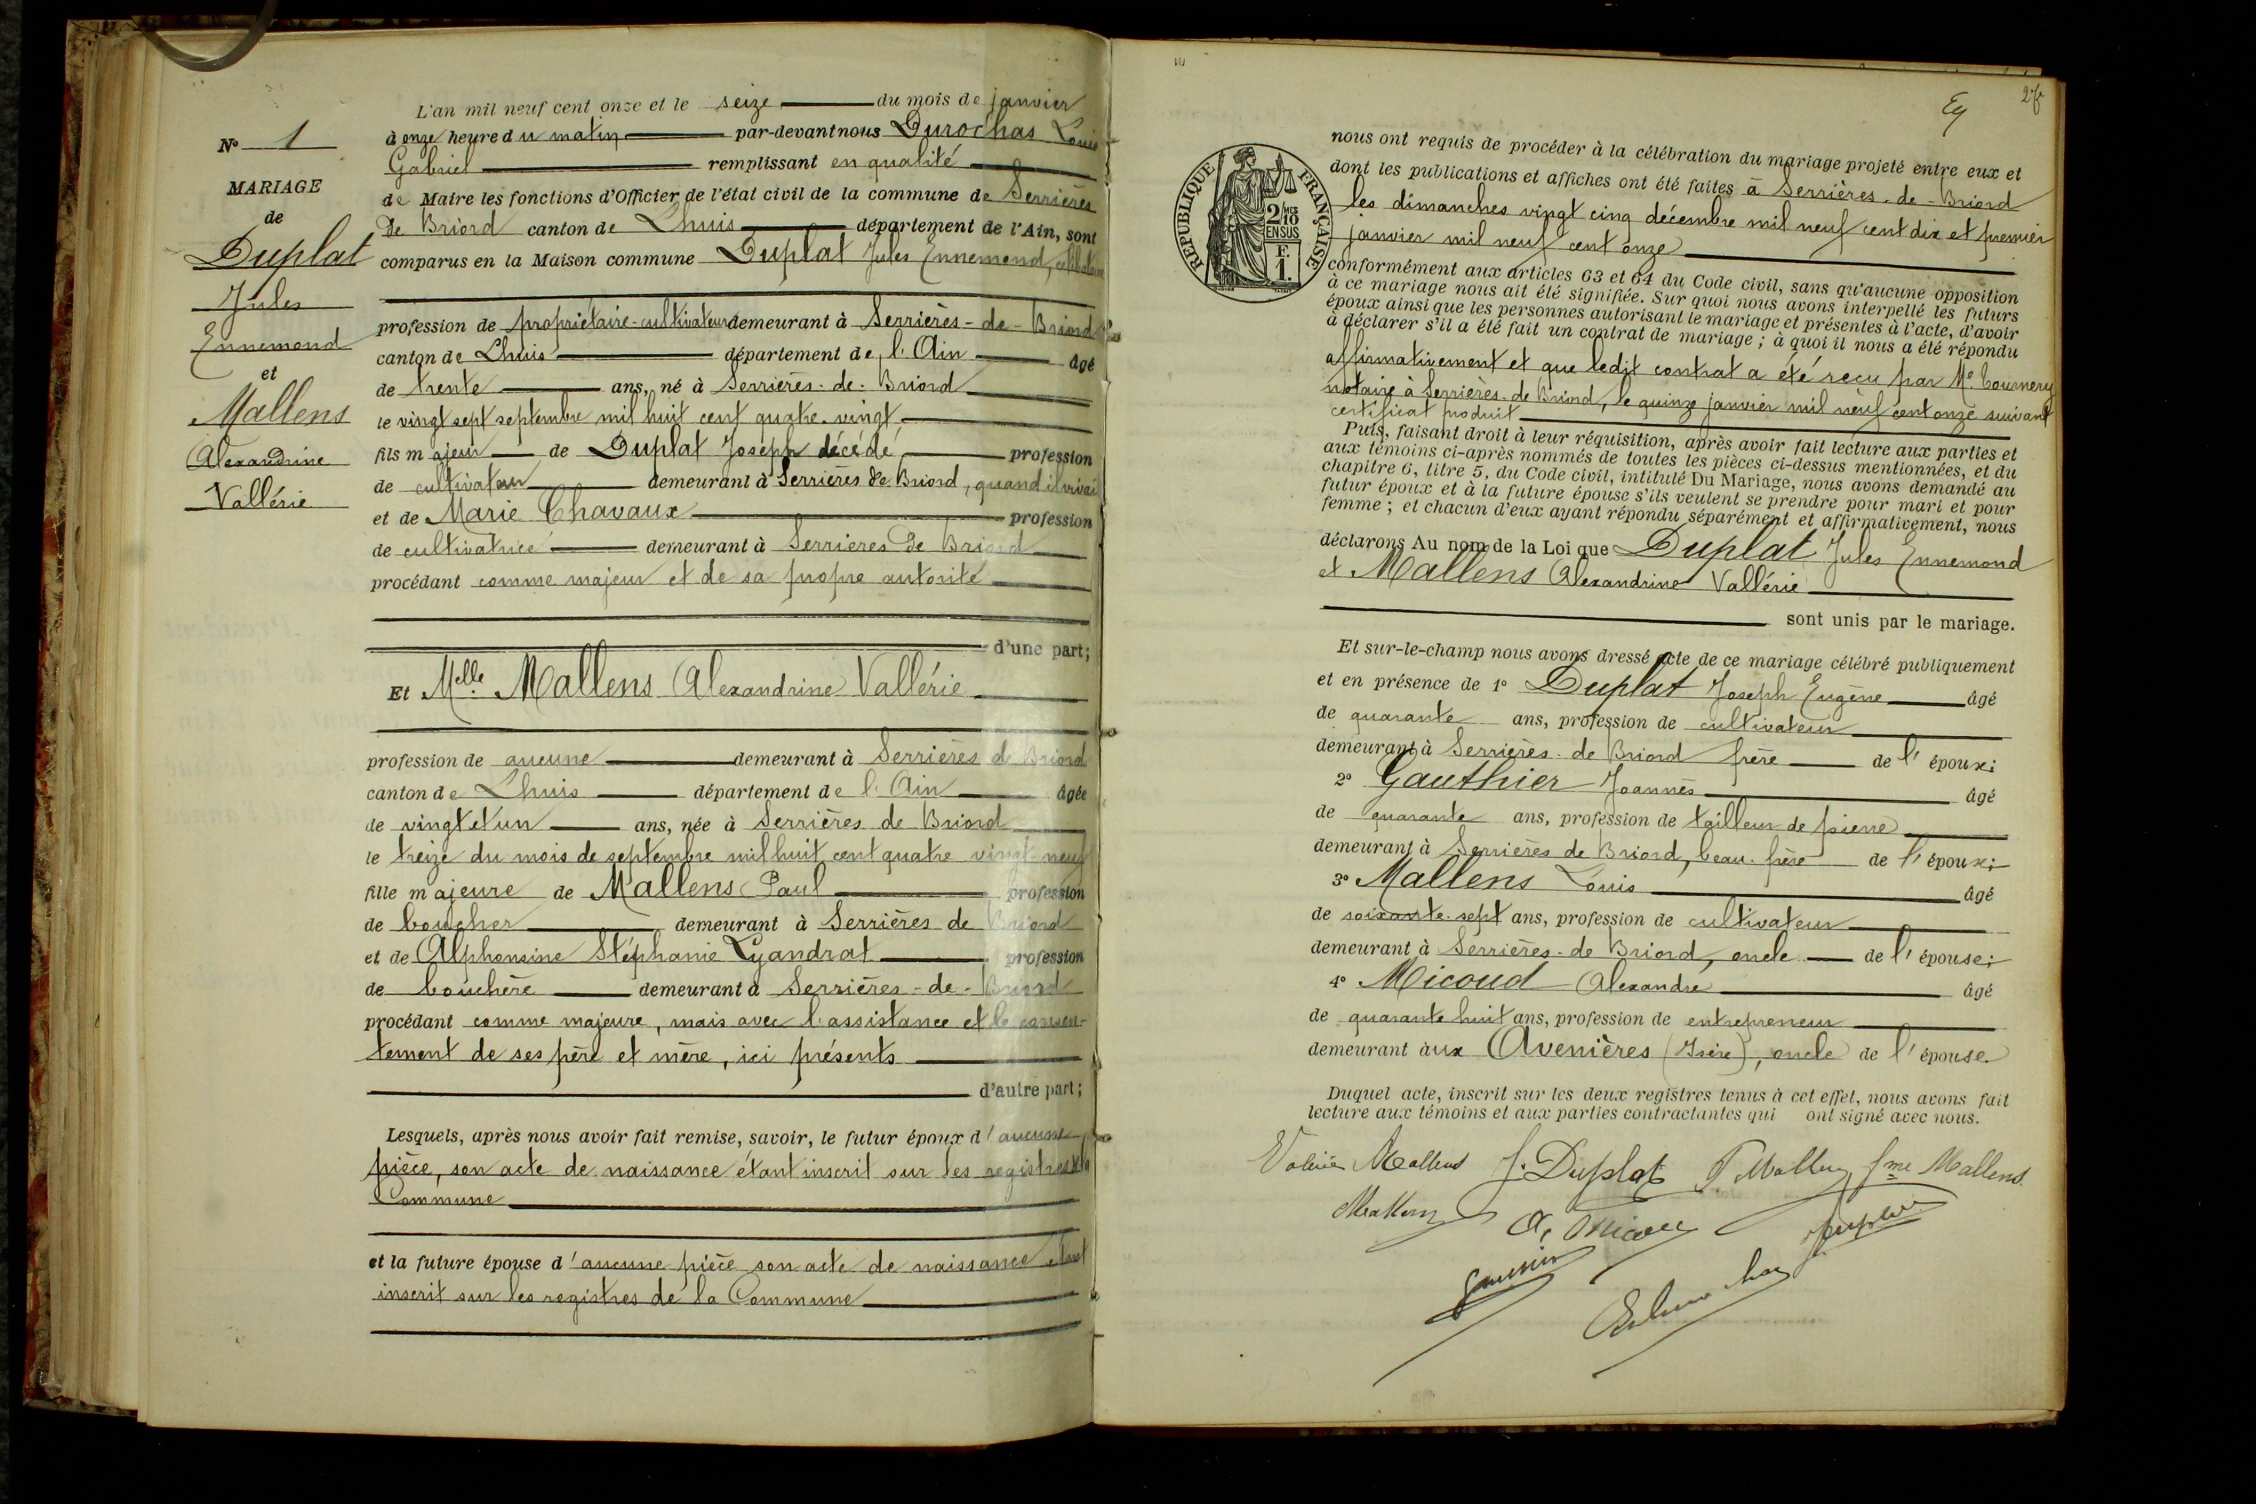 L'an mil neuf cent onze et le seize du mois de janvier
à onze heure du matin par-devant nous Durochas Louis
Gabriel remplissant en qualité
de Maire les fonctions d'Officier de l'état civil de la commune de Serrières
de Briord canton de Lhuis département de l'Ain, sont
comparus en la Maison commune Duplat Jules Ennemond, célibataire
profession de propriétaire-cultivateur demeurant à Serrières-de-Briord
canton de Lhuis département de l'Ain âgé
de trente ans, né à Serrières-de-Briord
le vingt sept septembre mil huit cent quatre-vingt
fils majeur de Duplat Joseph décédé profession
de cultivateur demeurant à Serrières de Briord, quand il vivait
et de Marie Chavaux profession
de cultivatrice demeurant à Serrières de Briord
procédant comme majeur et de sa propre autorité
d'une part;
Et Melle Mallens Alexandrine Vallérie
profession de aucune demeurant à Serrières de Briord
canton de Lhuis département de l'Ain âgée
de vingt et un ans, née à Serrières de Briord
le treize du mois de septembre mil huit cent quatre vingt-neuf
fille majeure de Mallens Paul profession
de boucher demeurant à Serrières de Briord
et de Alphonsine Stéphanie Lyandrat profession
de bouchère demeurant à Serrières-de-Briord
procédant comme majeure, mais avec l'assistance et le consen-
tement de ses père et mère, ici présents
d'autre part;
Lesquels, après nous avoir fait remise, savoir, le futur époux d'aucune
pièce, son acte de naissance étant inscrit sur les registres de la
Commune
et la future épouse d'aucune pièce son acte de naissance étant
inscrit sur les registres de la Commune
N° 1
MARIAGE
de
Duplat
Jules
Ennemond
et
Mallens
Alexandrine
Vallérie
RÉPUBLIQUE FRANÇAISE
2/10 MES
EN SUS
F.
1.
nous ont requis de procéder à la célébration du mariage projeté entre eux et
dont les publications et affiches ont été faites à Serrières-de-Briord
les dimanches vingt cinq décembre mil neuf cent dix et premier
janvier mil neuf cent onze
conformément aux articles 63 et 64 du Code civil, sans qu'aucune opposition
à ce mariage nous ait été signifiée. Sur quoi nous avons interpellé les futurs
époux ainsi que les personnes autorisant le mariage et présentes à l'acte, d'avoir
à déclarer s'il a été fait un contrat de mariage; à quoi il nous a été répondu
affirmativement et que ledit contrat a été reçu par Me Tournery
notaire à Serrières-de-Briord, le quinze janvier mil neuf cent onze suivant
certificat produit
Puis, faisant droit à leur réquisition, après avoir fait lecture aux parties et
aux témoins ci-après nommés de toutes les pièces ci-dessus mentionnées, et du
chapitre 6, titre 5, du Code civil, intitulé Du Mariage, nous avons demandé au
futur époux et à la future épouse s'ils veulent se prendre pour mari et pour
femme; et chacun d'eux ayant répondu séparément et affirmativement, nous
déclarons Au nom de la Loi que Duplat Jules Ennemond
et Mallens Alexandrine Vallérie
sont unis par le mariage.
Et sur-le-champ nous avons dressé acte de ce mariage célébré publiquement
et en présence de 1° Duplat Joseph Eugène âgé
de quarante ans, profession de cultivateur
demeurant à Serrières-de Briord frère de l'époux;
2° Gauthier Joannès âgé
de quarante ans, profession de tailleur de pierre
demeurant à Serrières de Briord, beau-frère de l'époux;
3° Mallens Louis âgé
de soixante-sept ans, profession de cultivateur
demeurant à Serrières-de Briord, oncle de l'épouse;
4° Micoud Alexandre âgé
de quarante huit ans, profession de entrepreneur
demeurant aux Avenières (Isère), oncle de l'épouse
Duquel acte, inscrit sur les deux registres tenus à cet effet, nous avons fait
lecture aux témoins et aux parties contractantes qui ont signé avec nous.
Valérie Mallens J. Duplat P. Mallens fme Mallens
Mallens A. Micoud Duplat